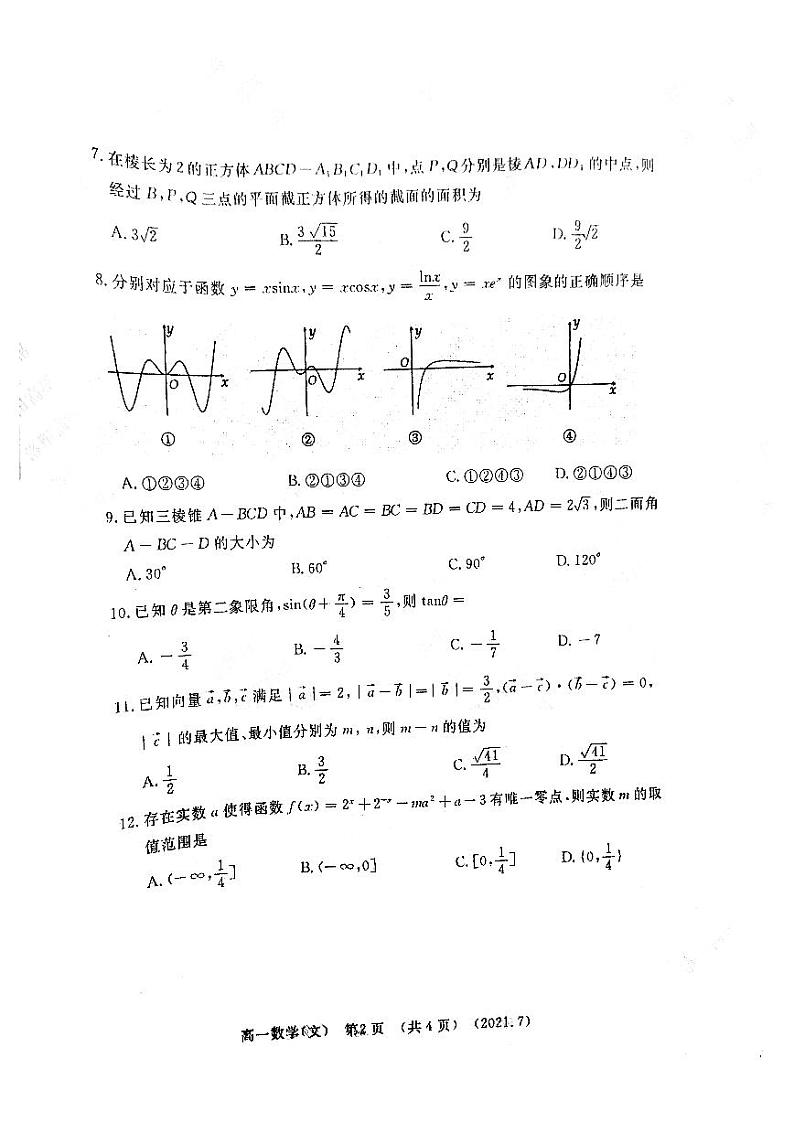 7.在棱长为2的正方体ABCD-A₁B₁C₁D₁中,点P,Q分别是棱AD,DD₁的中点,则
经过B,P,Q三点的平面截正方体所得的截面的面积为
A.3√2 B.3√15/2 C.9/2 D.9/2√2
8.分别对应于函数y=xsinx,y=xcosx,y=lnx/x,y=xeˣ的图象的正确顺序是
y y y y
O x O x O x O x
① ② ③ ④
A.①②③④ B.②①③④ C.①②④③ D.②①④③
9.已知三棱锥A-BCD中,AB=AC=BC=BD=CD=4,AD=2√3,则二面角
A-BC-D的大小为
A.30° B.60° C.90° D.120°
10.已知θ是第二象限角,sin(θ+π/4)=3/5,则tanθ=
A.-3/4 B.-4/3 C.-1/7 D.-7
11.已知向量a⃗,b⃗,c⃗满足|a⃗|=2,|a⃗-b⃗|=|b⃗|=3/2,(a⃗-c⃗)·(b⃗-c⃗)=0,
|c⃗|的最大值、最小值分别为m,n,则m-n的值为
A.1/2 B.3/2 C.√41/4 D.√41/2
12.存在实数a使得函数f(x)=2ˣ+2⁻ˣ-ma²+a-3有唯一零点.则实数m的取
值范围是
A.(-∞,1/4] B.(-∞,0] C.[0,1/4] D.{0,1/4}
高一数学(文) 第2页 (共4页) (2021.7)